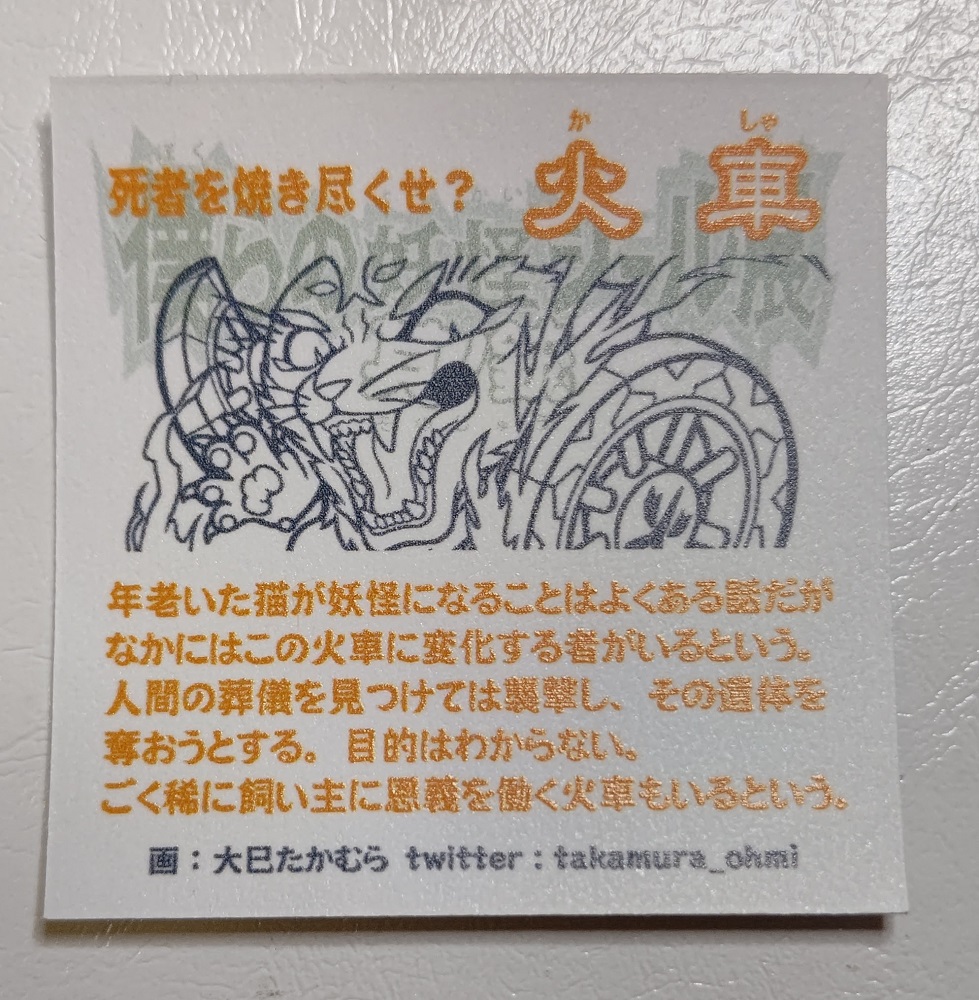 か しゃ
死者を焼き尽くせ？ 火車
僕らの妖怪シール展
年老いた猫が妖怪になることはよくある話だが
なかにはこの火車に変化する者がいるという。
人間の葬儀を見つけては襲撃し、その遺体を
奪おうとする。目的はわからない。
ごく稀に飼い主に恩義を働く火車もいるという。
画：大巳たかむら twitter：takamura_ohmi